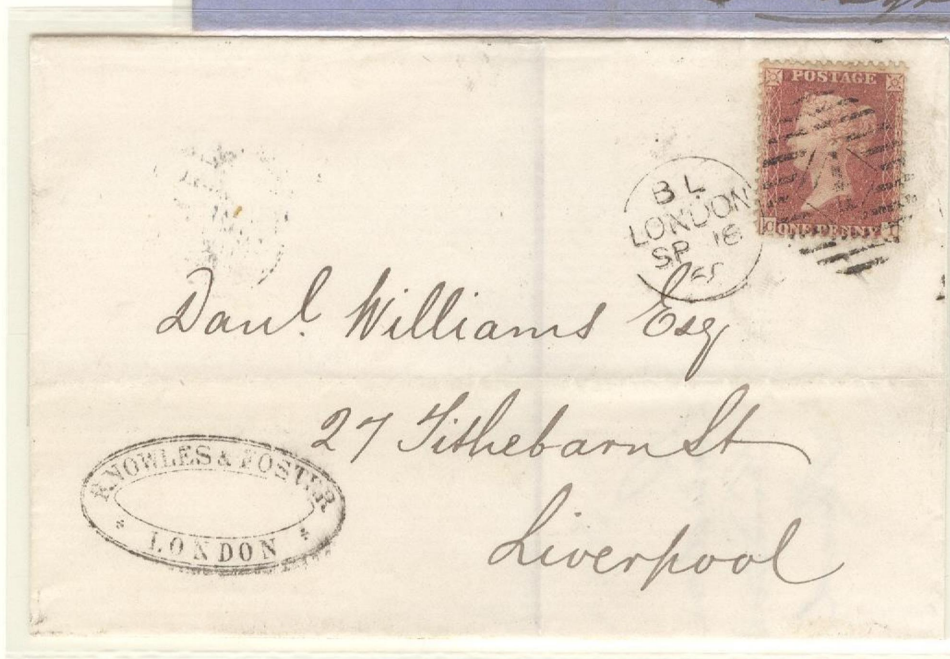 POSTAGE
ONE PENNY
B L
LONDON
SP 16
Danl. Williams Esq
27 Tithebarn St
Liverpool
KNOWLES & FOSTER
LONDON